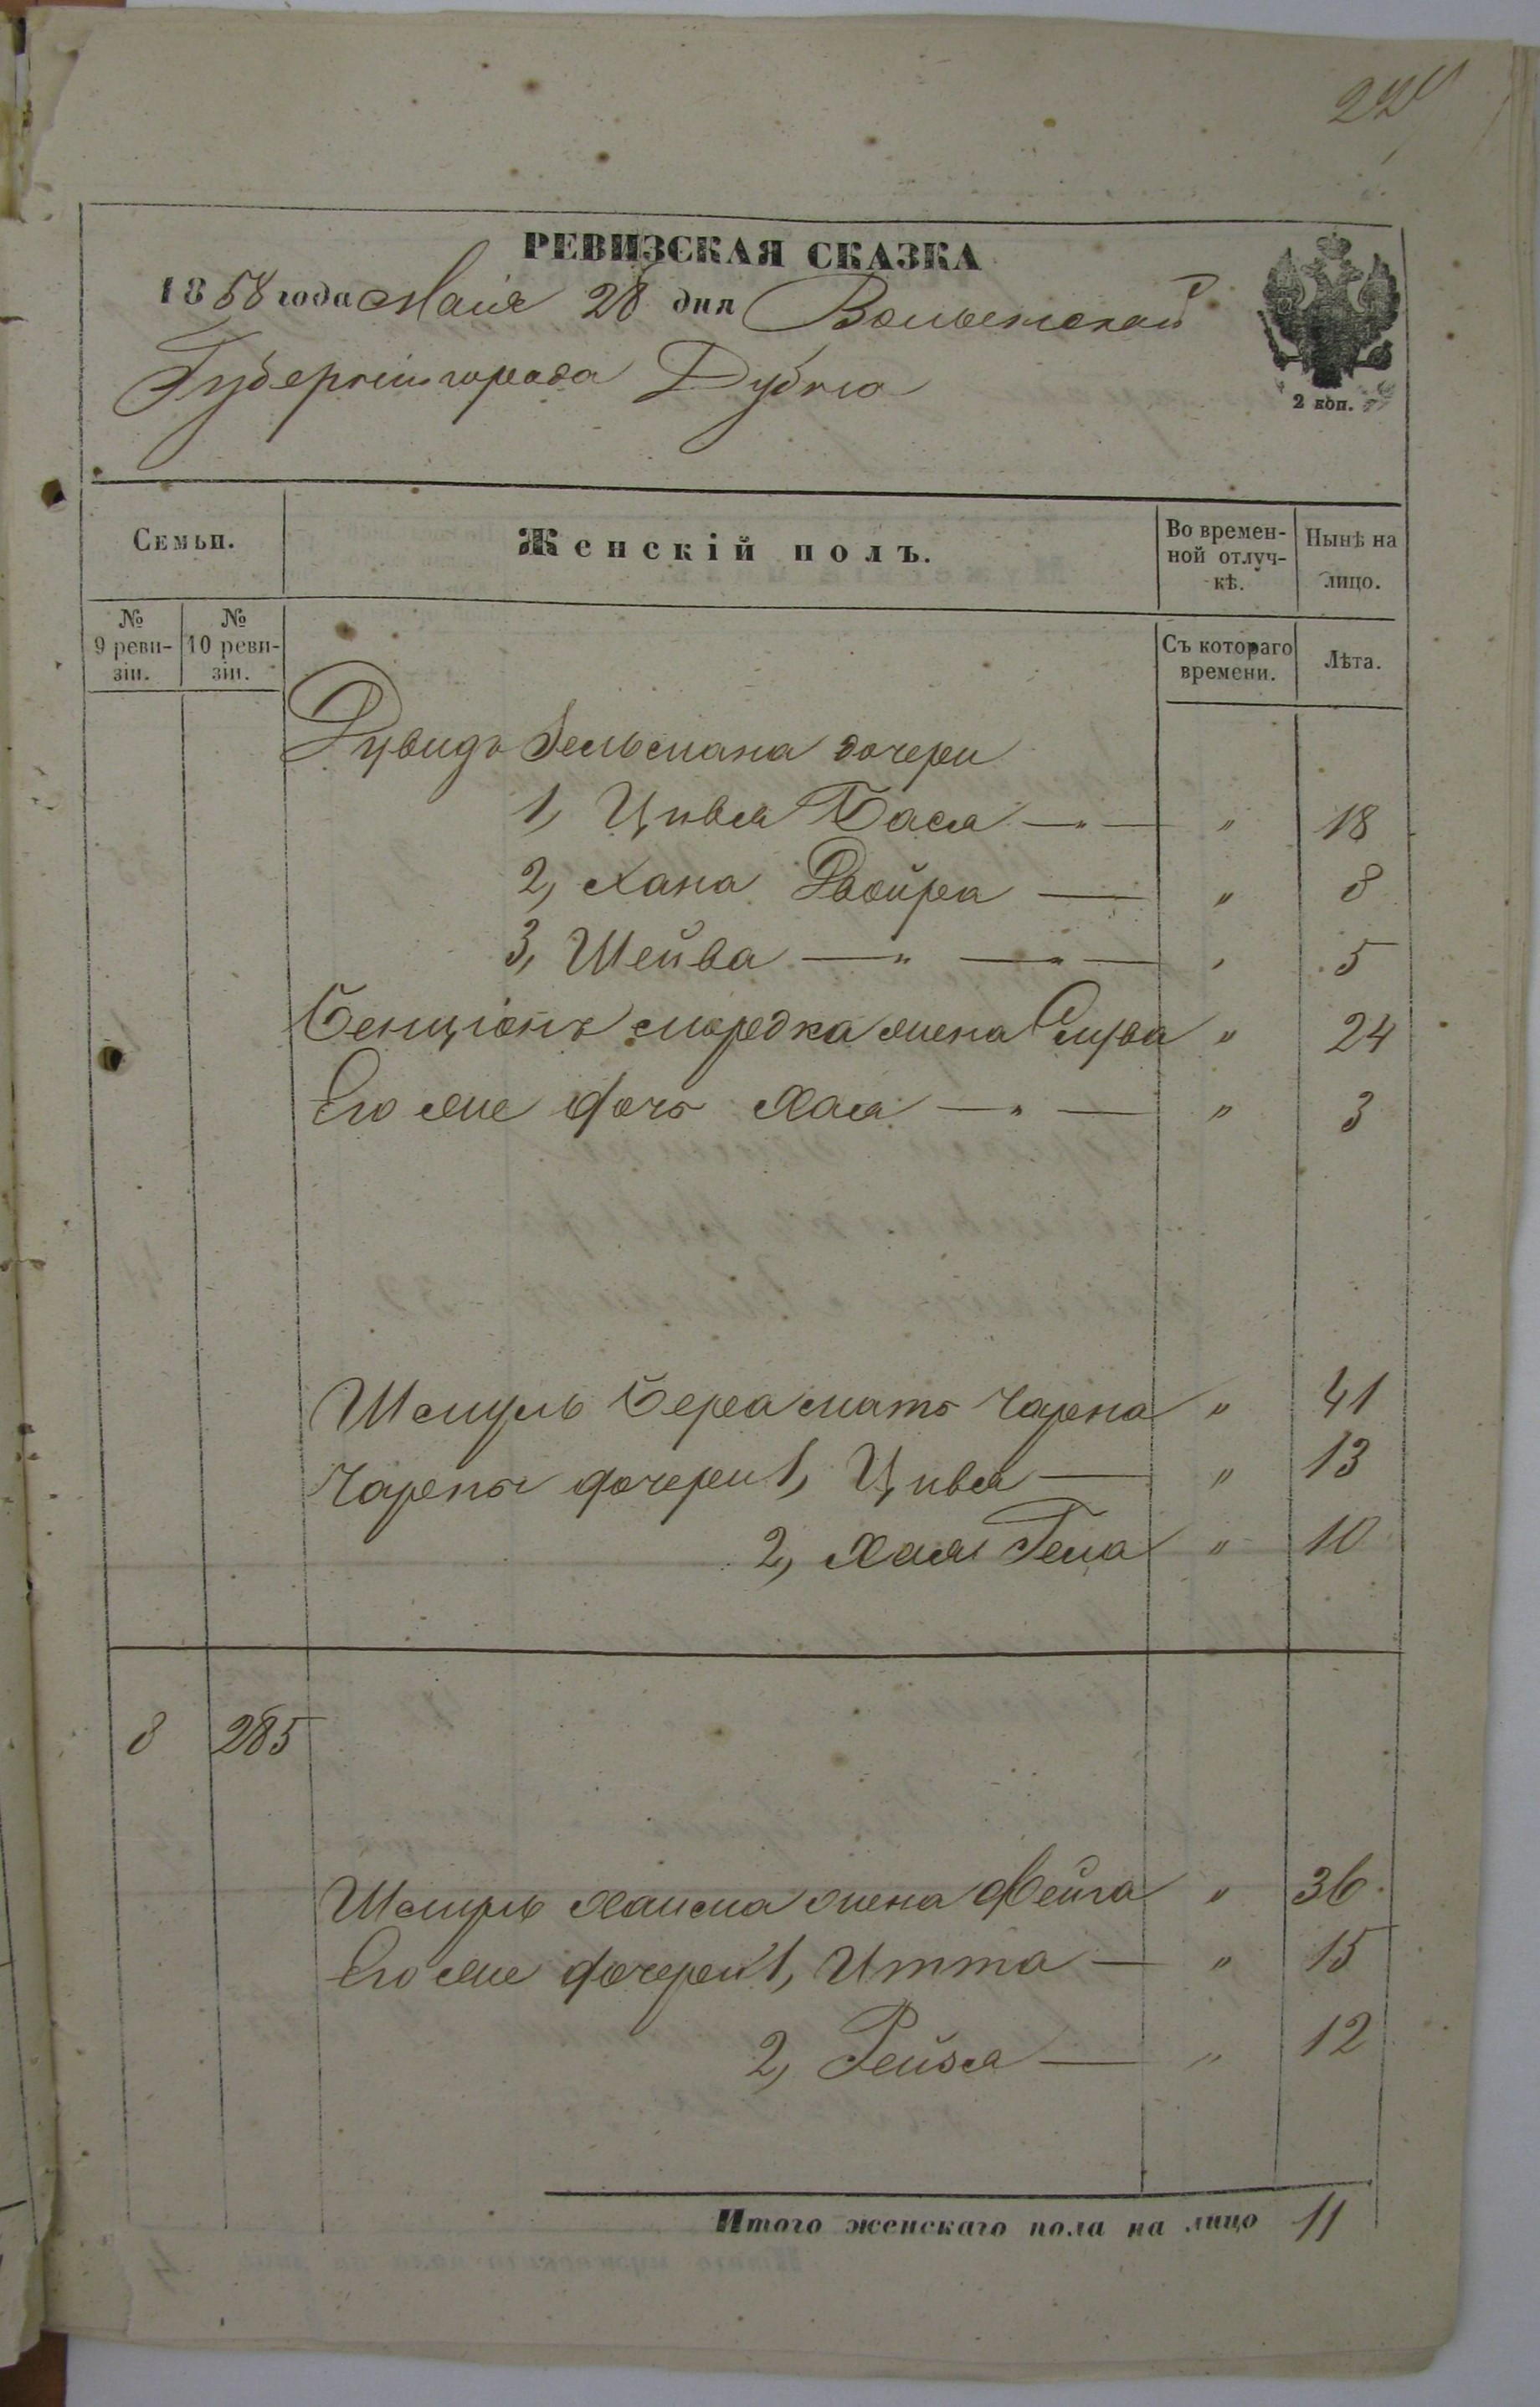 224
РЕВИЗСКАЯ СКАЗКА
1858 года Маія 28 дня Волынской
Губерніи города Дубно
2 коп.
Семьи.
Женскій полъ.
Во времен-
ной отлуч-
кѣ.
Нынѣ на
лицо.
№
9 реви-
зіи.
№
10 реви-
зіи.
Съ котораго
времени.
Лѣта.
Дувидъ Зельмана дочери
1, Цивья Бася — " — " 18
2, Хана Двойра — " 8
3, Шейва — " — " — " 5
Бенціонъ Мордка жена Слува " 24
Его же дочь Хая — " — " 3
Шмуль Бера мать Чарна " 41
Чарны дочери 1, Цивья — " 13
2, Хая Гена " 10
8 285
Шмуль Хаима жена Фейга " 36
Его же дочери 1, Итта — " 15
2, Рейзя — " 12
Итого женскаго пола на лицо 11